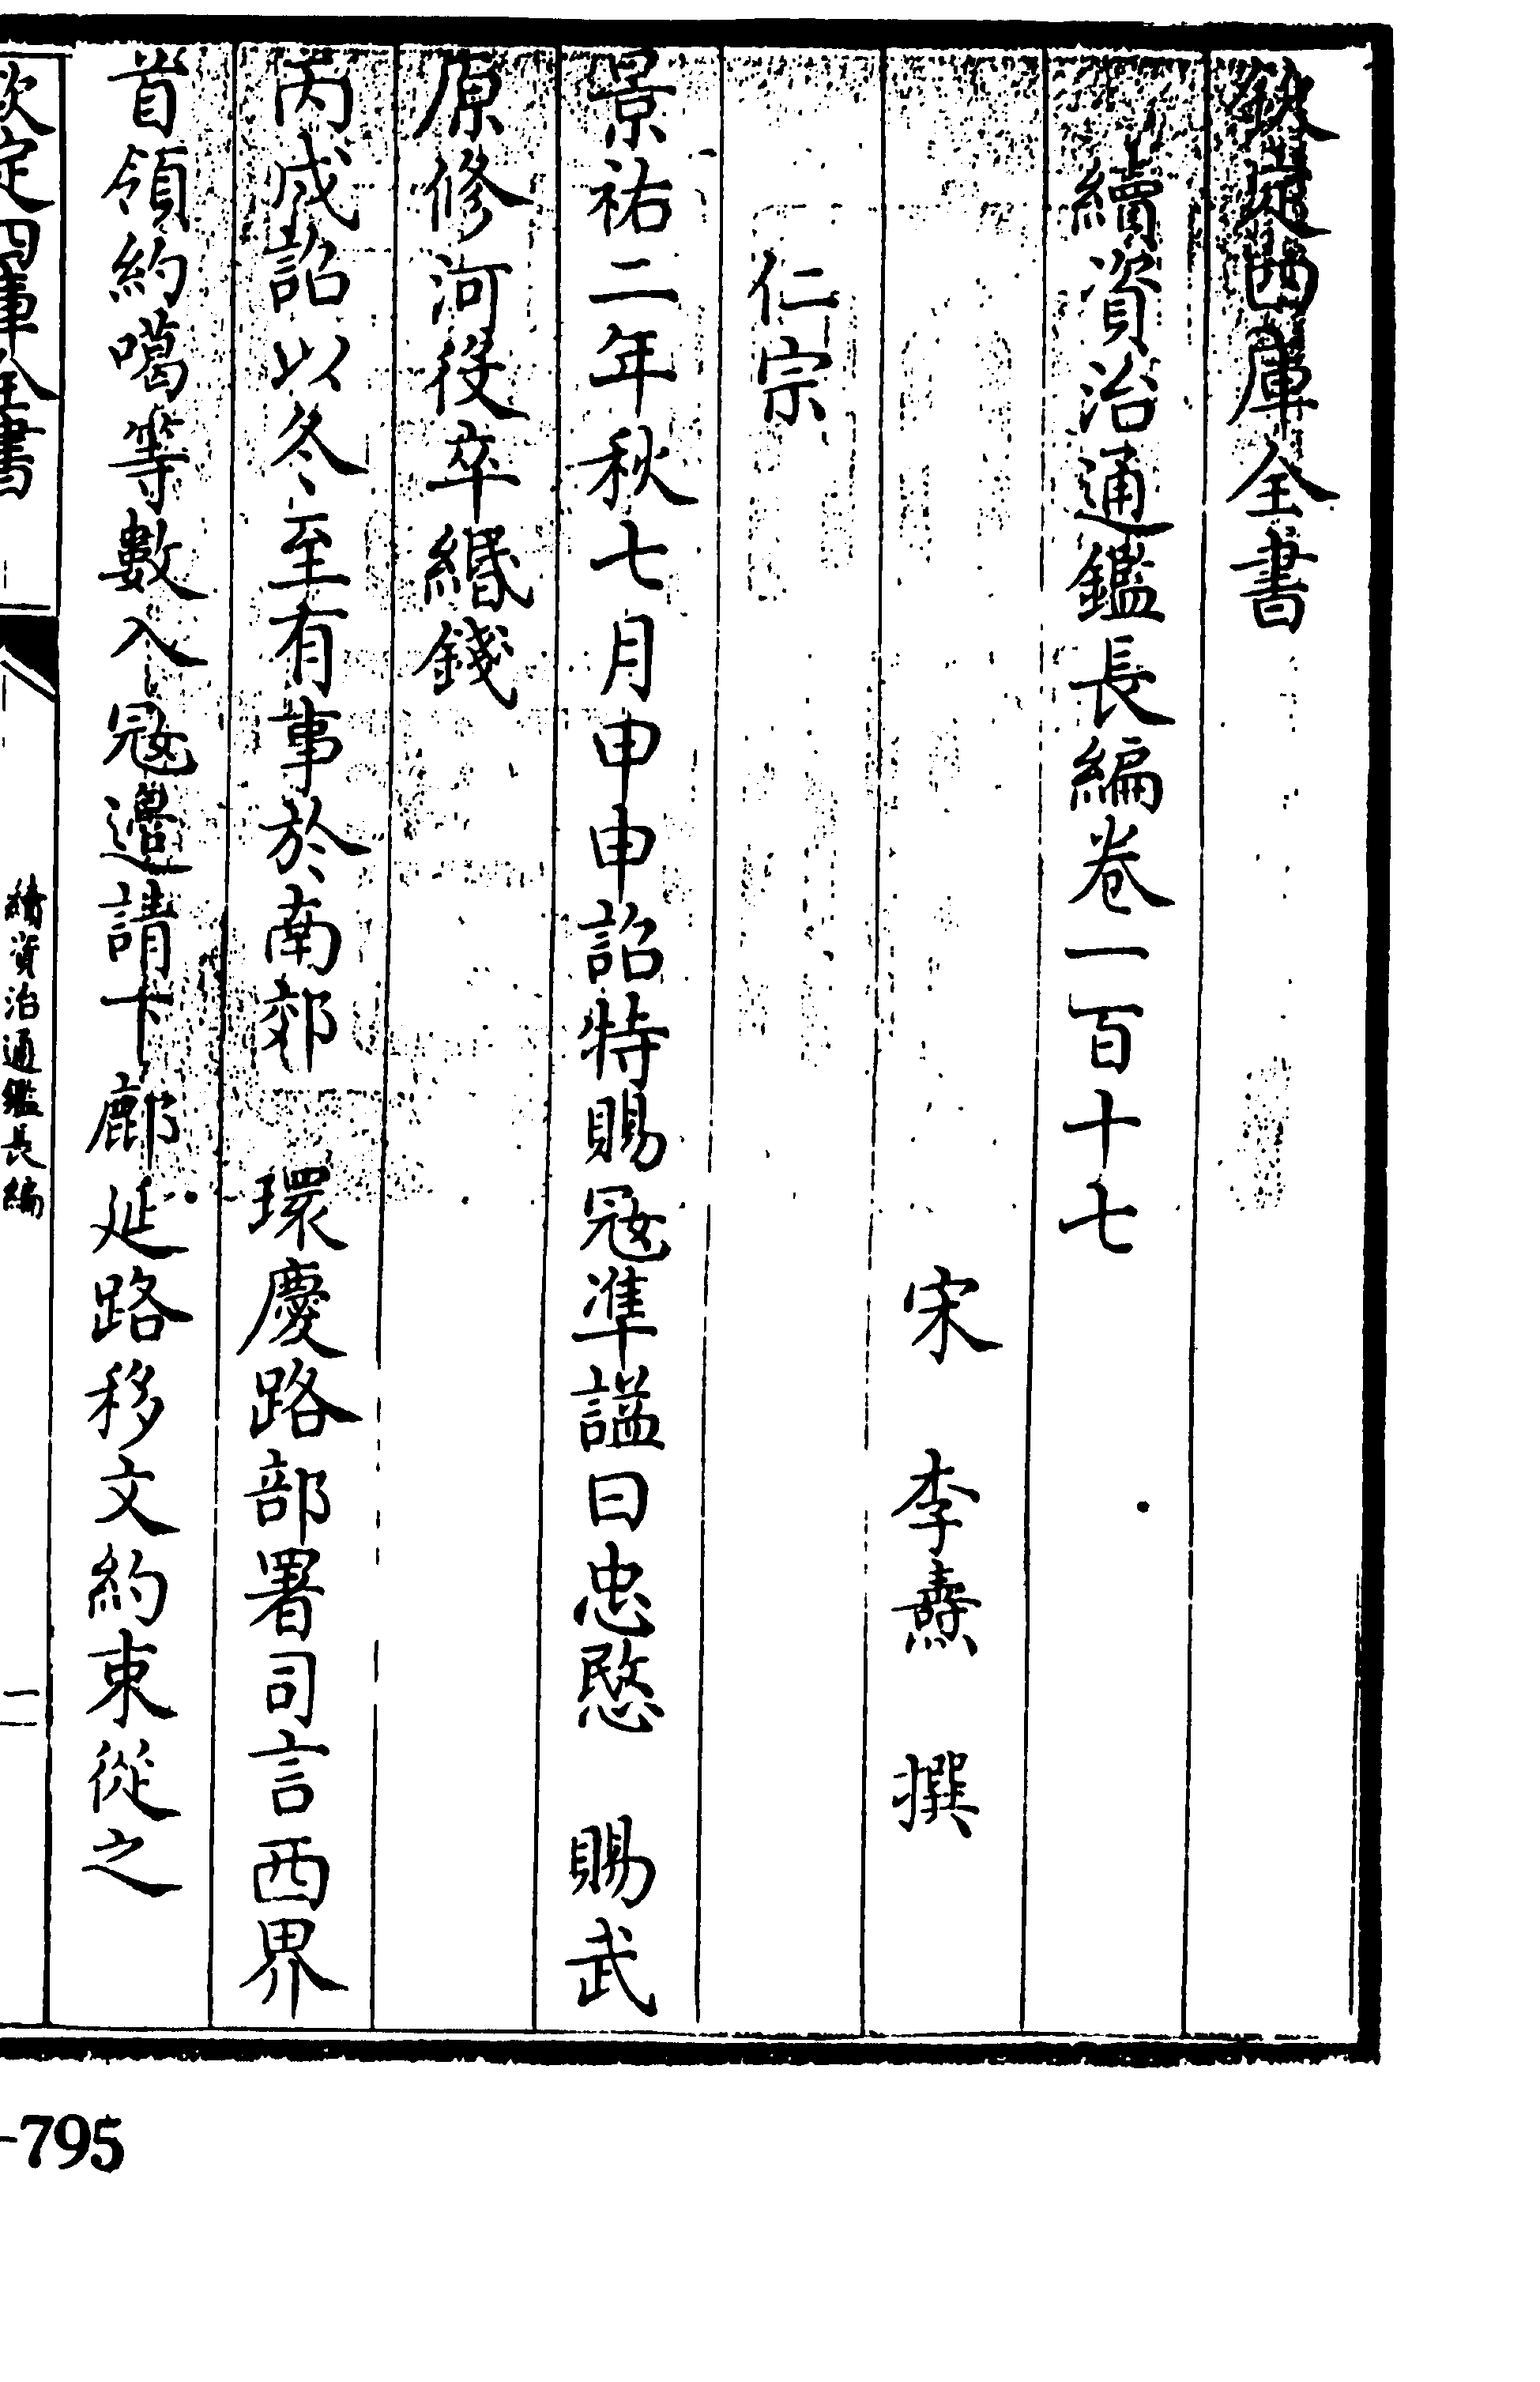 欽定四庫全書
續資治通鑑長編卷一百十七
宋 李燾 撰
仁宗
景祐二年秋七月申申詔特賜冦準諡曰忠愍 賜武
原修河役卒緡錢
丙戌詔以冬至有事於南郊 環慶路部署司言西界
首領約噶等數入冦邊請下鄜延路移文約束從之
欽定四庫全書
續資治通鑑長編
一
-795